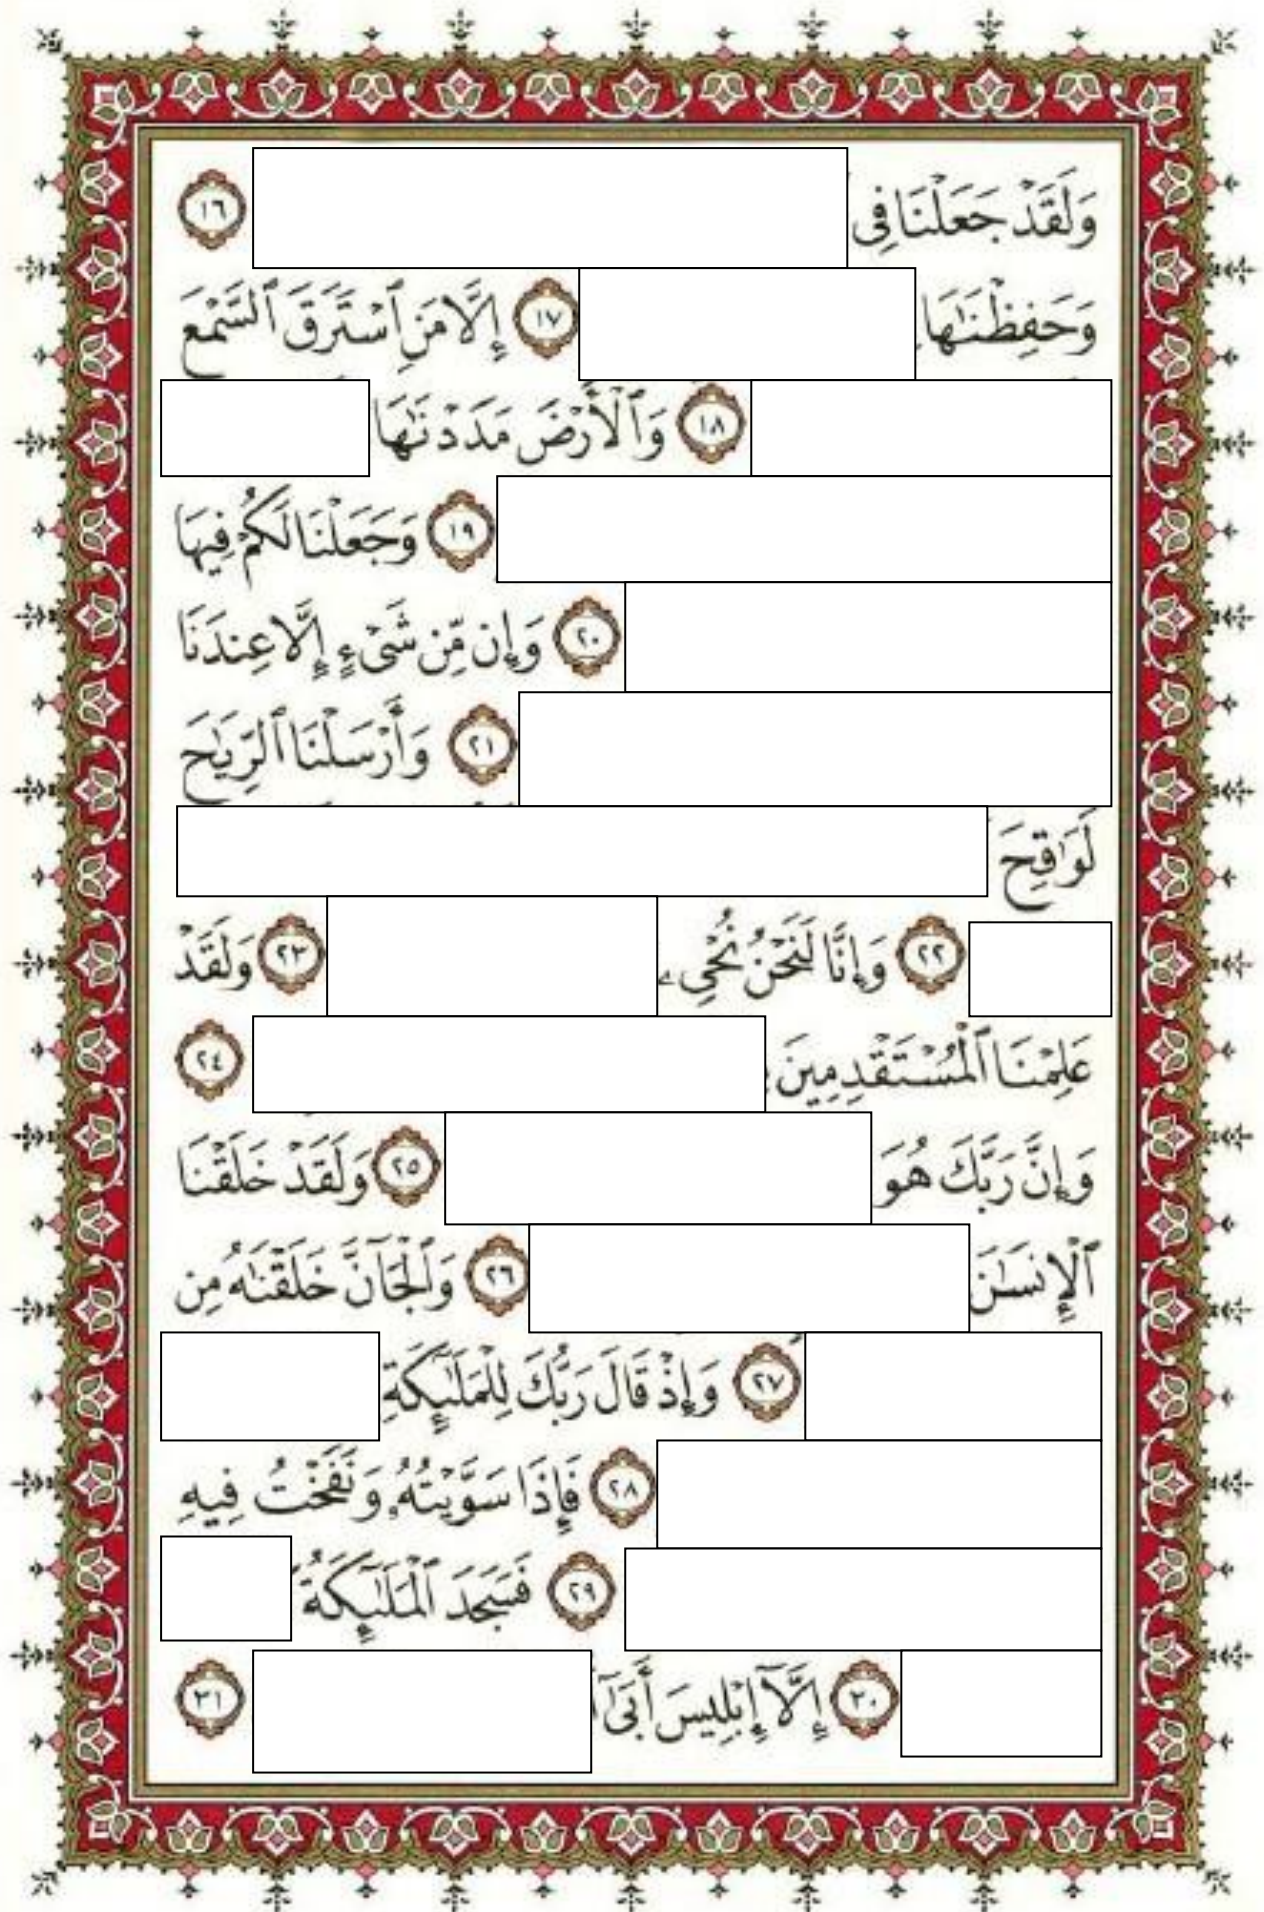 وَلَقَدْ جَعَلْنَا فِى ١٦
وَحَفِظْنَٰهَا ١٧ إِلَّا مَنِ ٱسْتَرَقَ ٱلسَّمْعَ
١٨ وَٱلْأَرْضَ مَدَدْنَٰهَا
١٩ وَجَعَلْنَا لَكُمْ فِيهَا
٢٠ وَإِن مِّن شَىْءٍ إِلَّا عِندَنَا
٢١ وَأَرْسَلْنَا ٱلرِّيَٰحَ
لَوَٰقِحَ
٢٢ وَإِنَّا لَنَحْنُ نُحْىِۦ ٢٣ وَلَقَدْ
عَلِمْنَا ٱلْمُسْتَقْدِمِينَ ٢٤
وَإِنَّ رَبَّكَ هُوَ ٢٥ وَلَقَدْ خَلَقْنَا
ٱلْإِنسَٰنَ ٢٦ وَٱلْجَآنَّ خَلَقْنَٰهُ مِن
٢٧ وَإِذْ قَالَ رَبُّكَ لِلْمَلَٰٓئِكَةِ
٢٨ فَإِذَا سَوَّيْتُهُۥ وَنَفَخْتُ فِيهِ
٢٩ فَسَجَدَ ٱلْمَلَٰٓئِكَةُ
٣٠ إِلَّآ إِبْلِيسَ أَبَىٰٓ ٣١